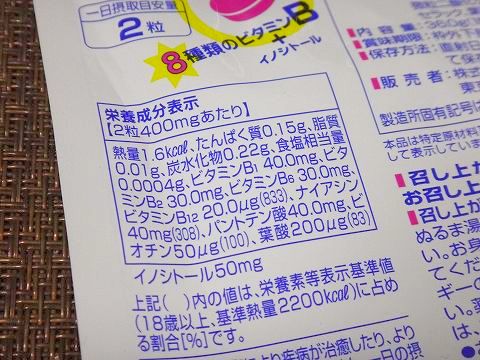 一日摂取目安量
2粒
8種類のビタミンB
+
イノシトール
栄養成分表示
【2粒400mgあたり】
熱量1.6kcal、たんぱく質0.15g、脂質
0.01g、炭水化物0.22g、食塩相当量
0.0004g、ビタミンB1 40.0mg、ビタ
ミンB2 30.0mg、ビタミンB6 30.0mg、
ビタミンB12 20.0μg(833)、ナイアシン
40mg(308)、パントテン酸40.0mg、ビ
オチン50μg(100)、葉酸200μg(83)
イノシトール50mg
上記( )内の値は、栄養素等表示基準値
(18歳以上、基準熱量2200kcal)に占め
る割合[%]です。
より疾病が治癒したり、より
一日の摂
内容量:
賞味期限:枠外下
保存方法:直射日
て保
販売者:株式
東京
製造所固有記号は
本品は特定原材料
して表示してい
召し上が
お召し上
召し上が
ぬるま湯
い。お身
てくだ
ギーの
い。薬